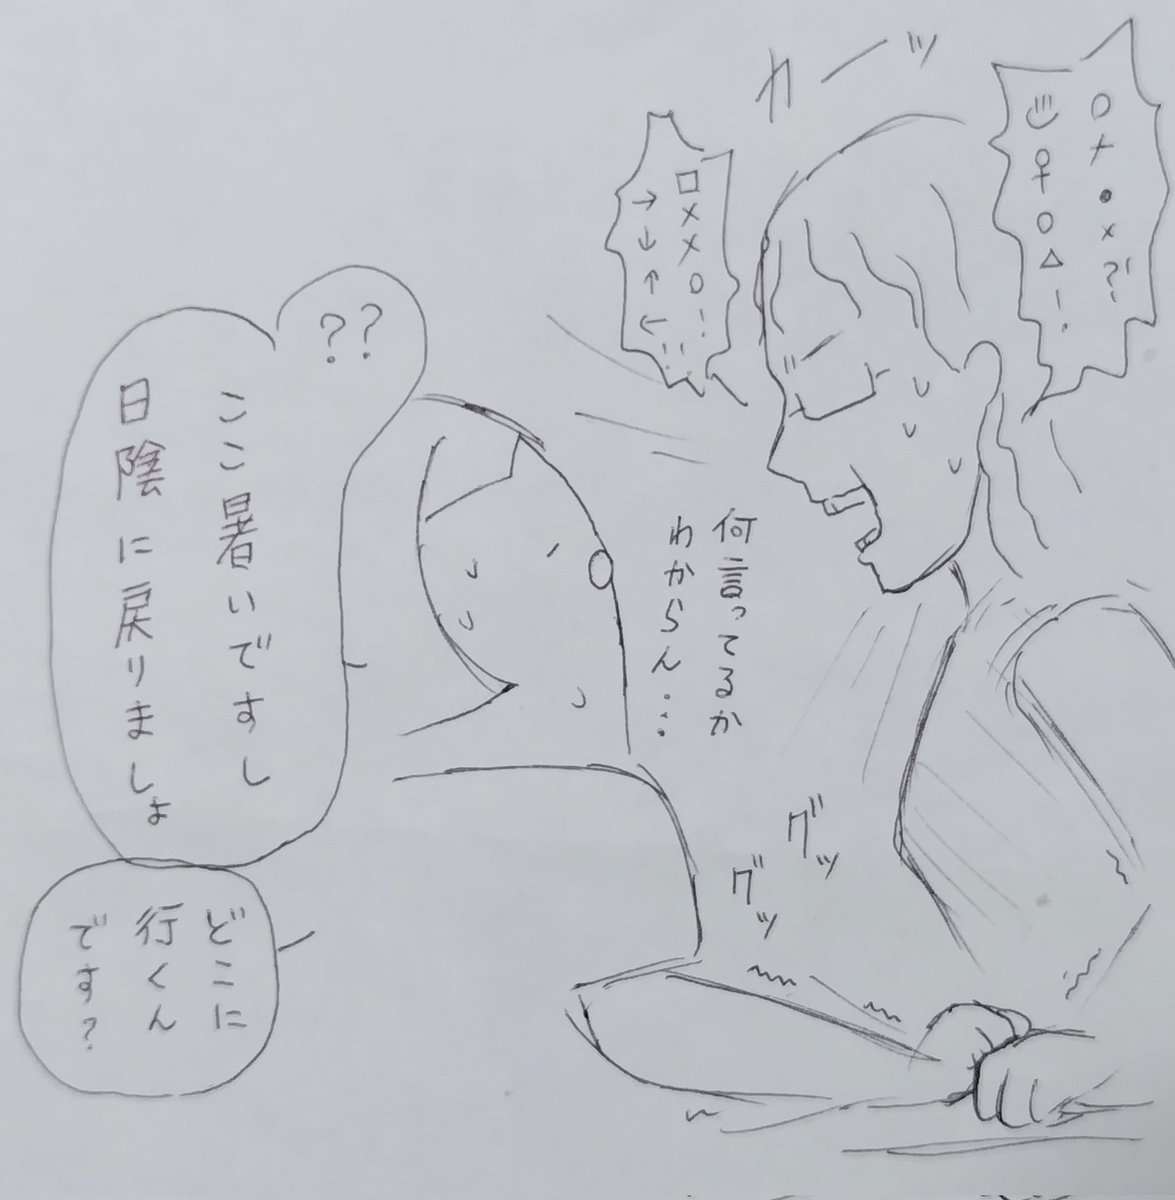 カーッ
○×●×?!
♨♀○△!
□××○!
→↓↑←!!
何言ってるか
わからん…
??
ここ暑いですし
日陰に戻りましょ
グッ
グッ
どこに
行くん
です?